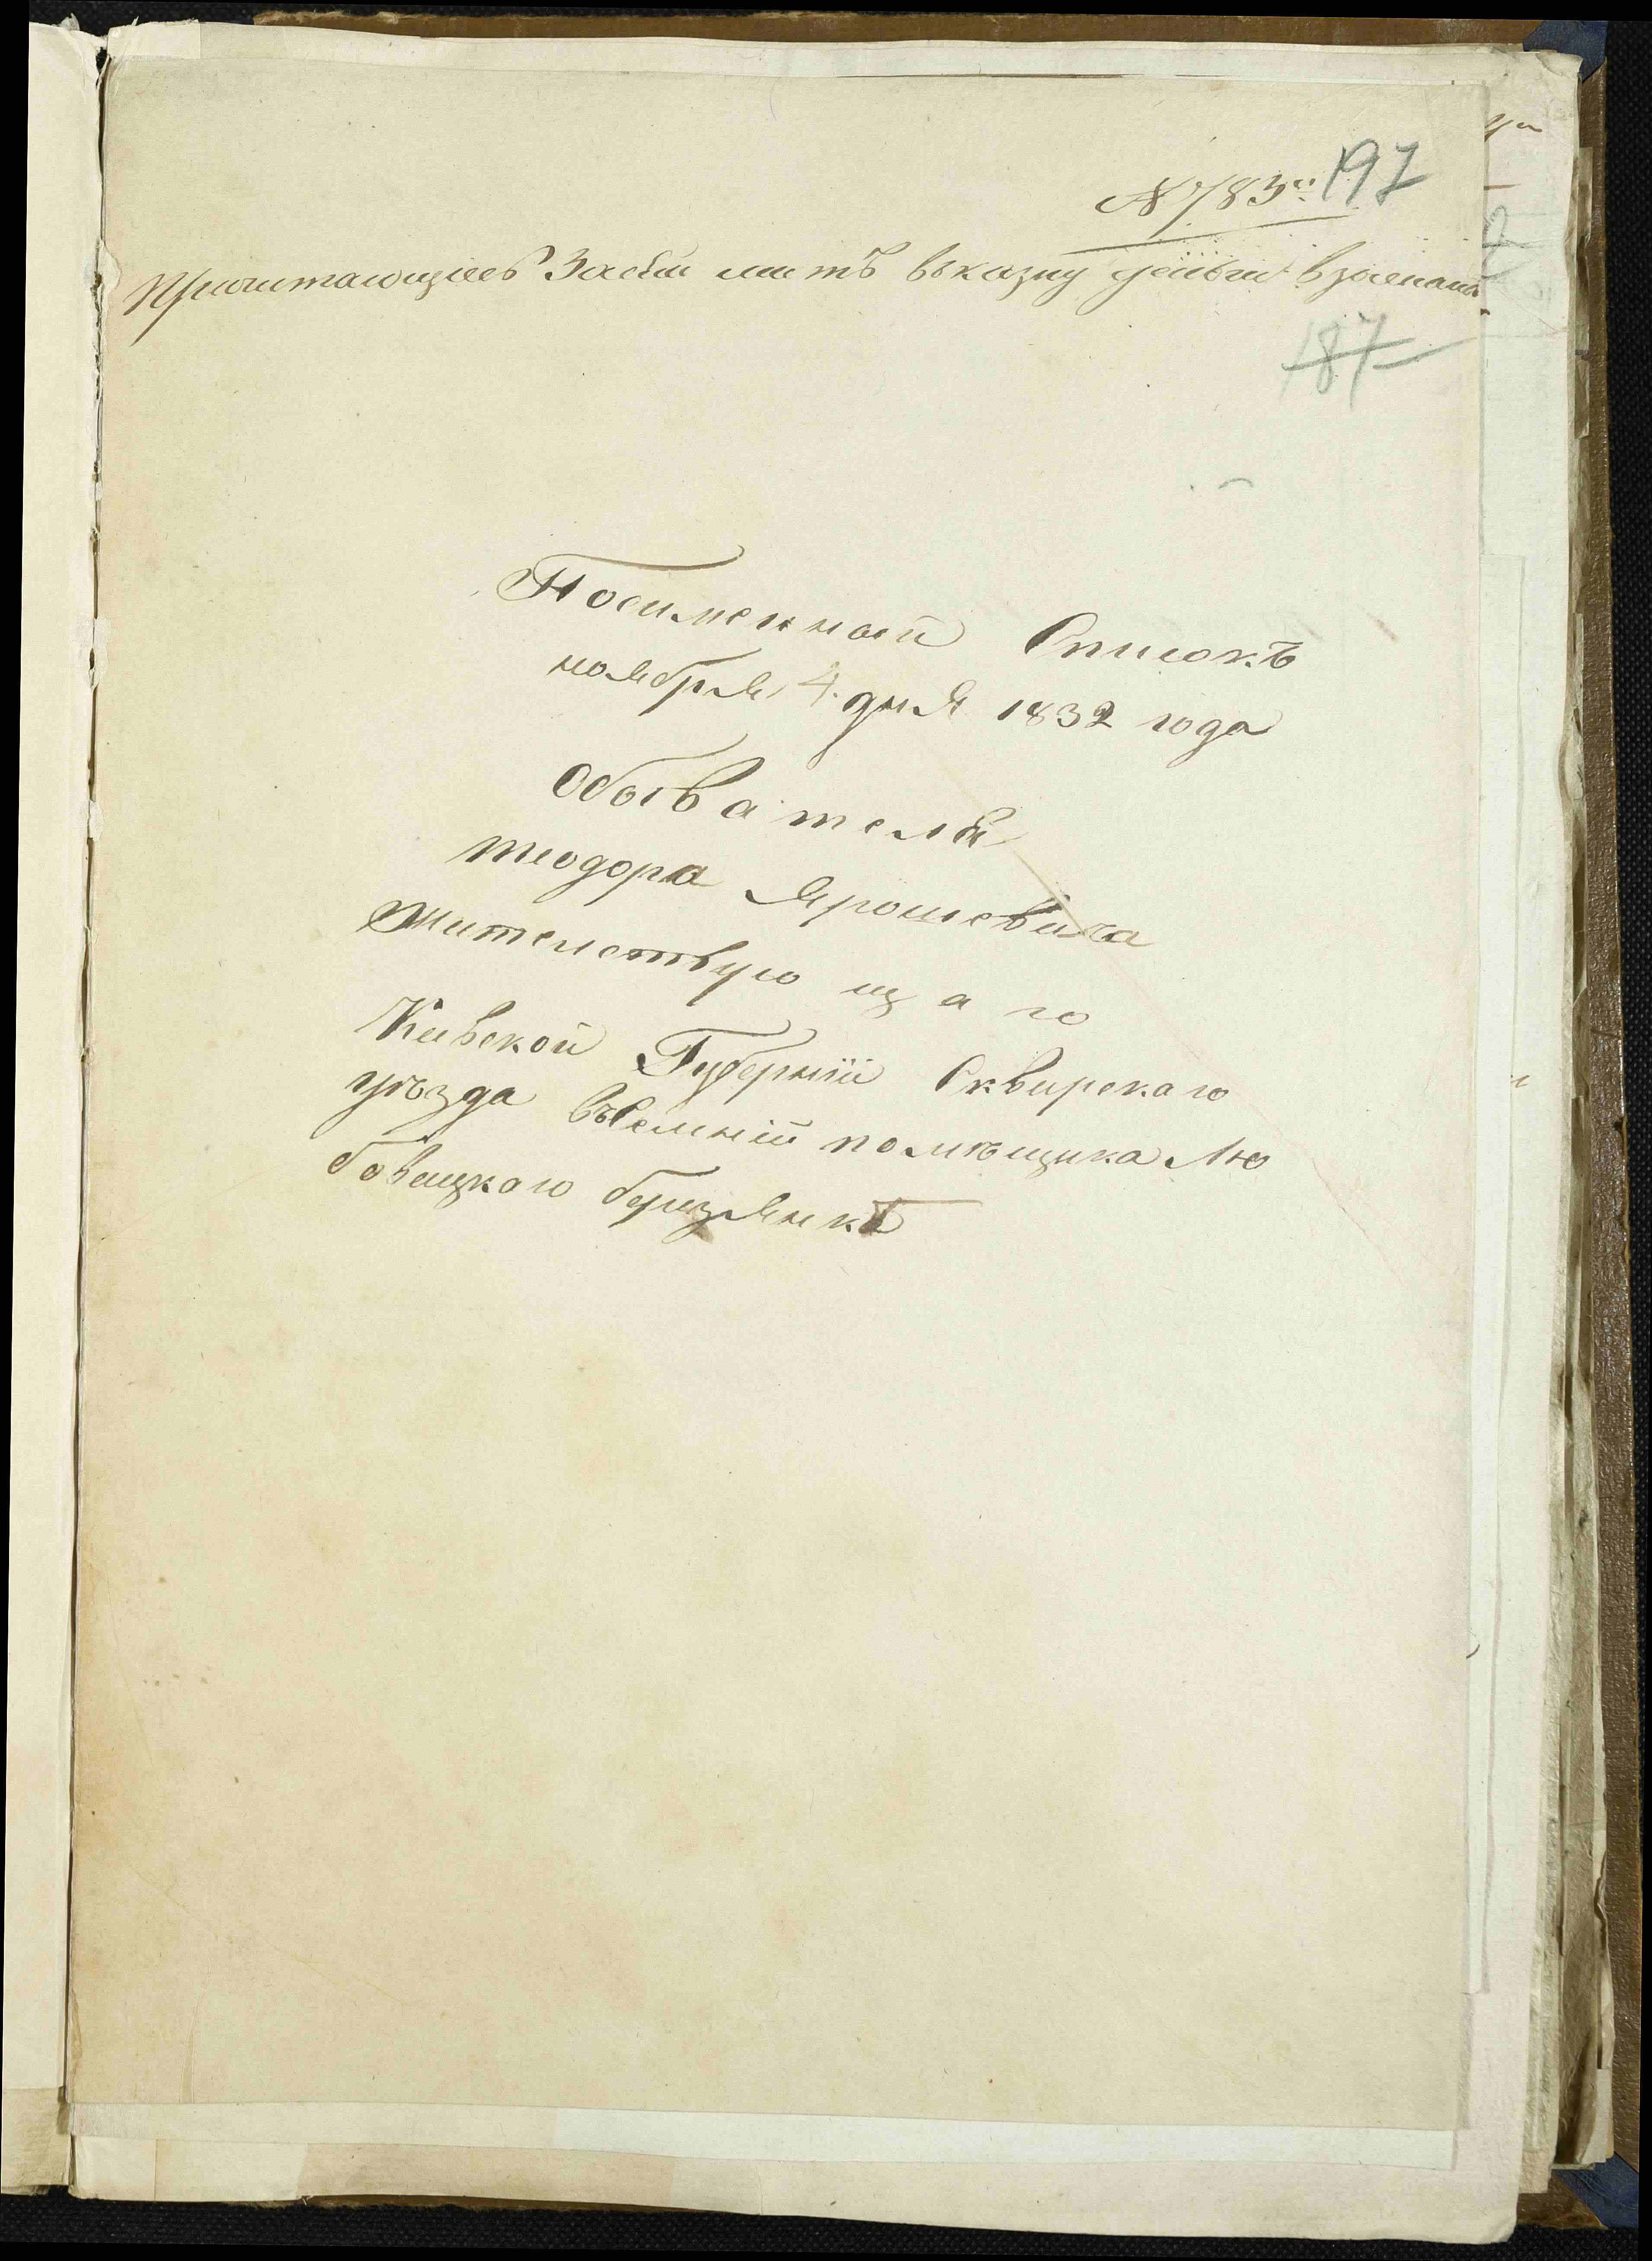 № 783й 197
Причитающіесѣ За сѣй листъ вказну деньги взысканы
187
Поеименной Списокъ
ноября 4. дня 1832 года
Обывателя
теодора Ярошевича
Жителствующаго
Киевской Губерніи Сквирскаго
уѣзда въселеніи помѣщика Лю
бовецкаго березянкѣ